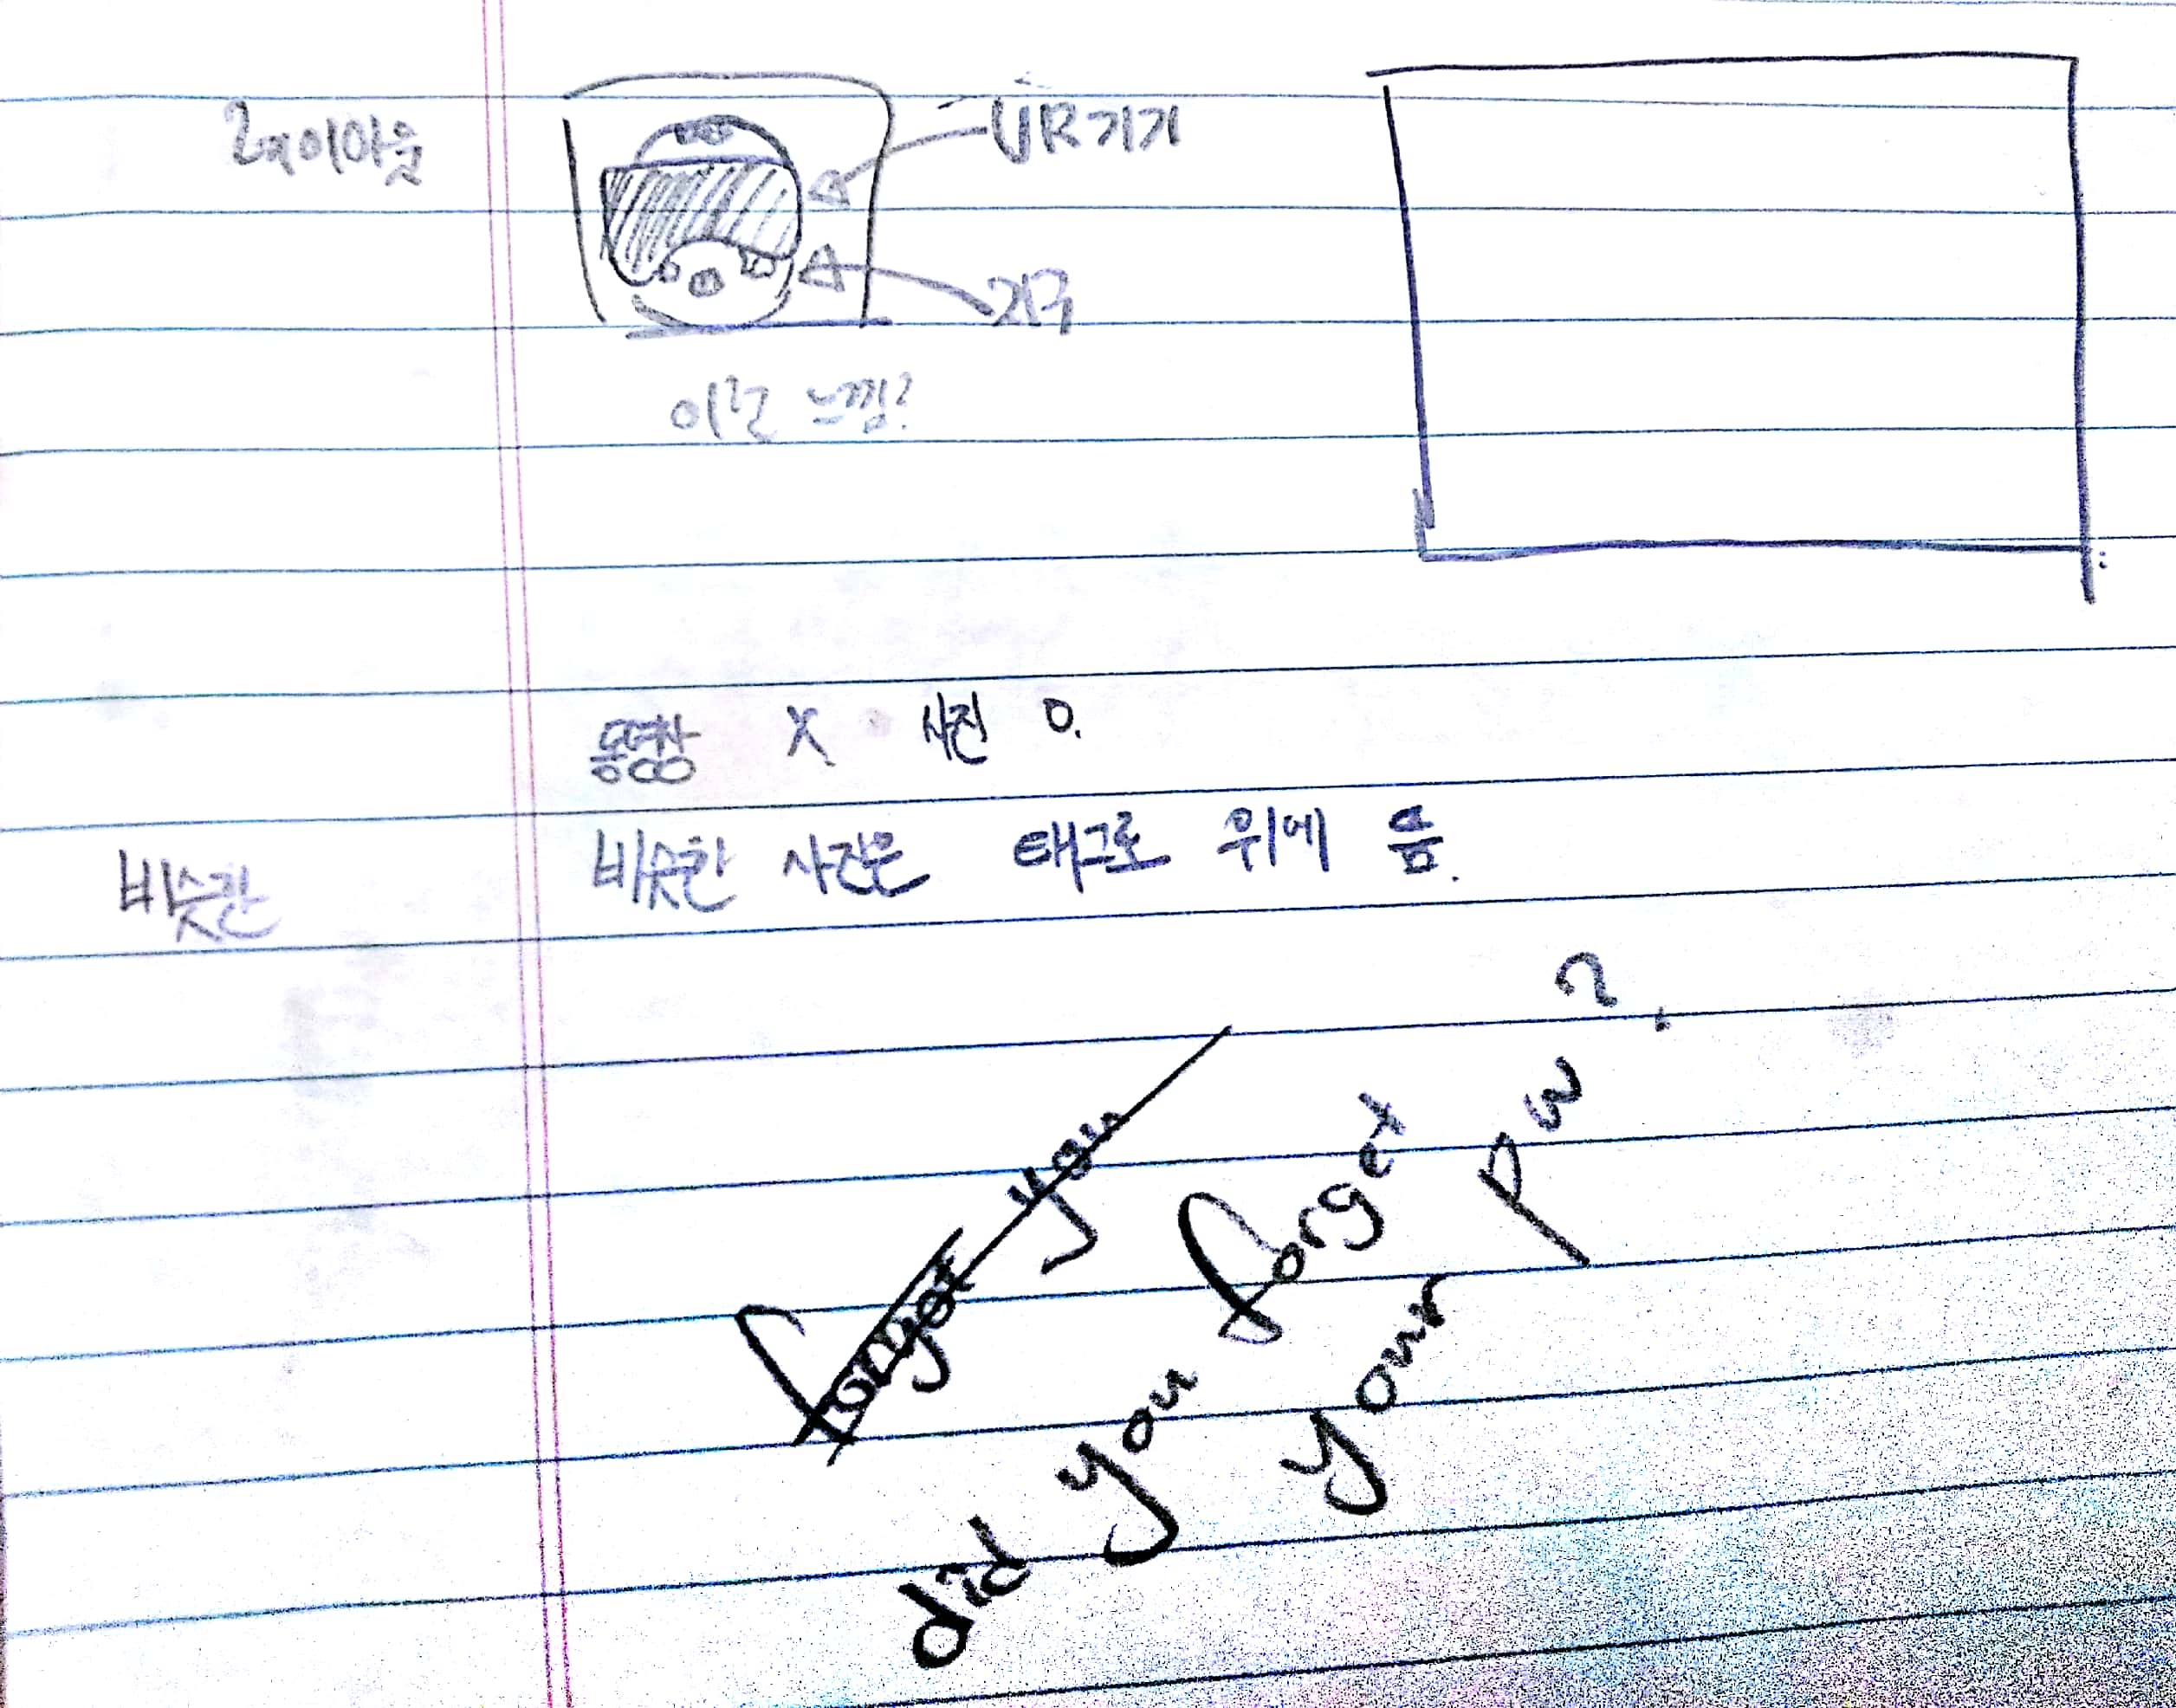 레이아웃
VR기기
지구
이런 느낌?
동영상 X 사진 O.
비슷한 비슷한 사진은 태그로 위에 뜸.
forgot you
did you forget
your pw?